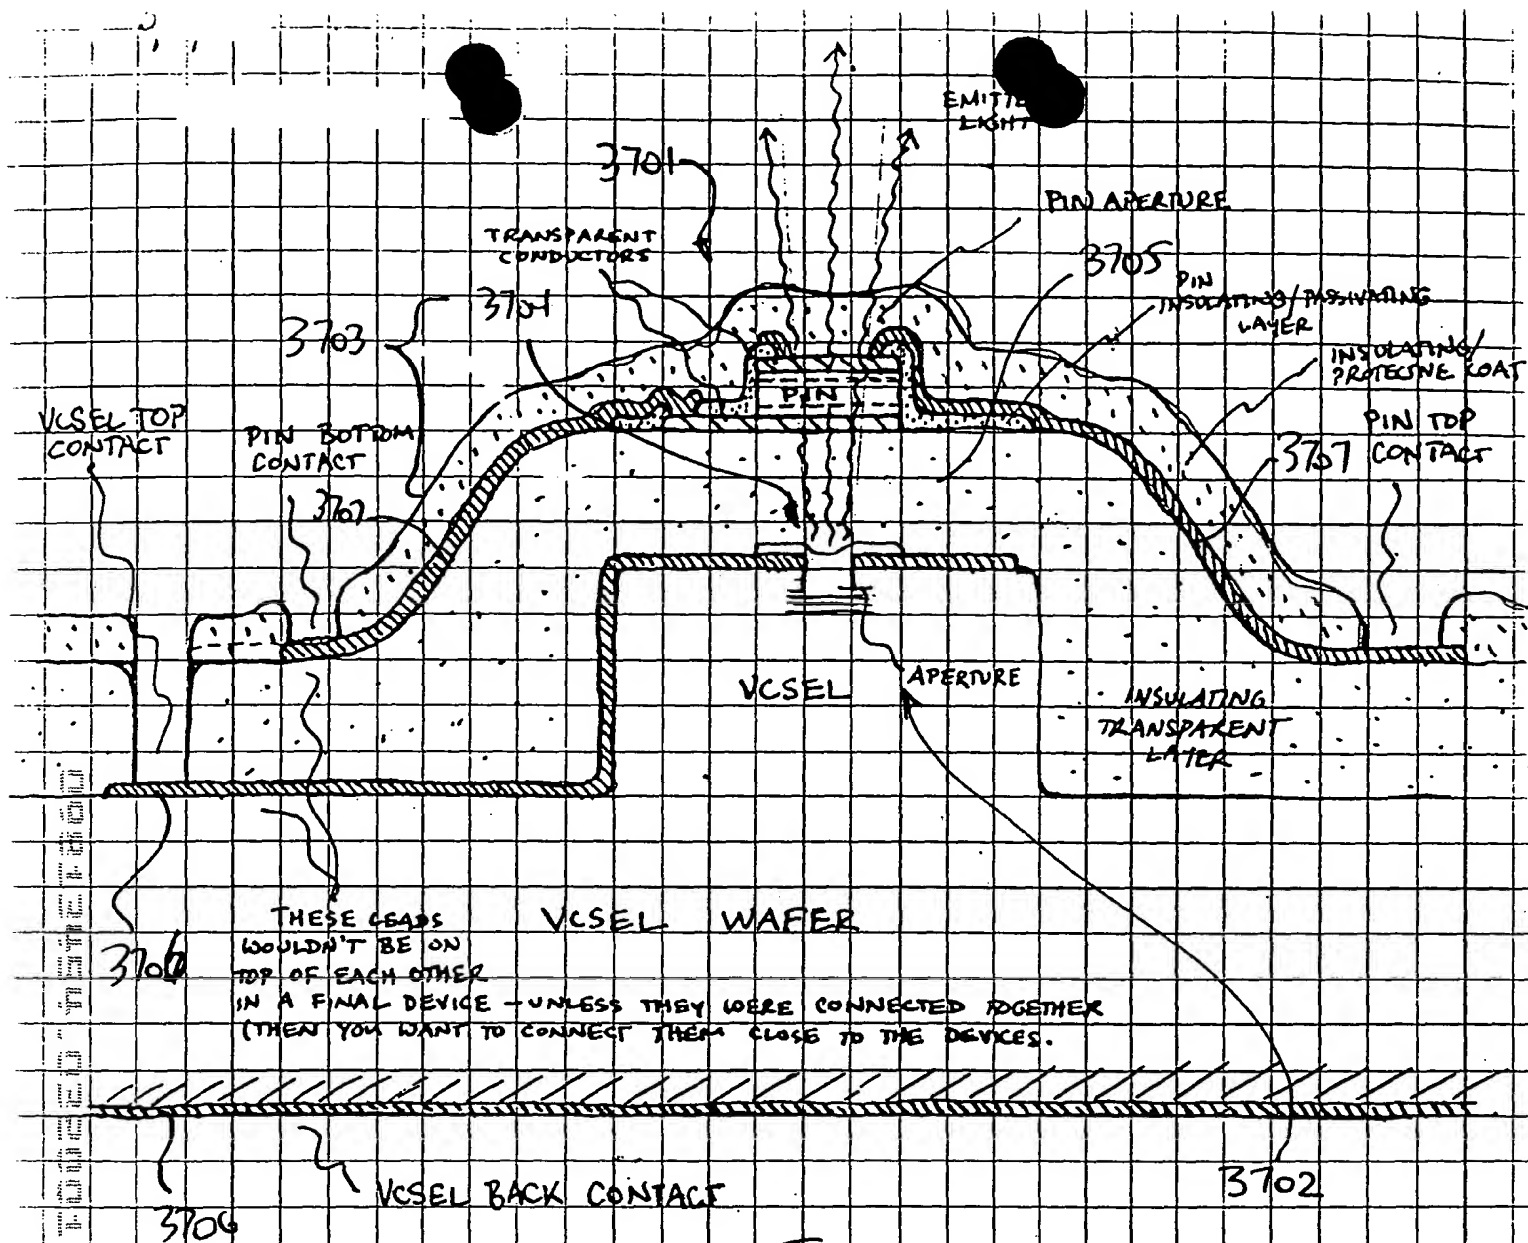 EMITTE
LIGHT
3701
PIN APERTURE
TRANSPARENT
CONDUCTORS
3705
PIN
INSULATING/PASSIVATING
LAYER
3704
3703
INSULATING/
PROTECTIVE COAT
VCSEL TOP
CONTACT
PIN BOTTOM
CONTACT
PIN
PIN TOP
CONTACT
3707
3707
VCSEL
APERTURE
INSULATING
TRANSPARENT
LAYER
THESE LEADS
WOULDN'T BE ON
TOP OF EACH OTHER
IN A FINAL DEVICE - UNLESS THEY WERE CONNECTED TOGETHER
(THEN YOU WANT TO CONNECT THEM CLOSE TO THE DEVICES.
VCSEL WAFER
3706
VCSEL BACK CONTACT
3702
3706